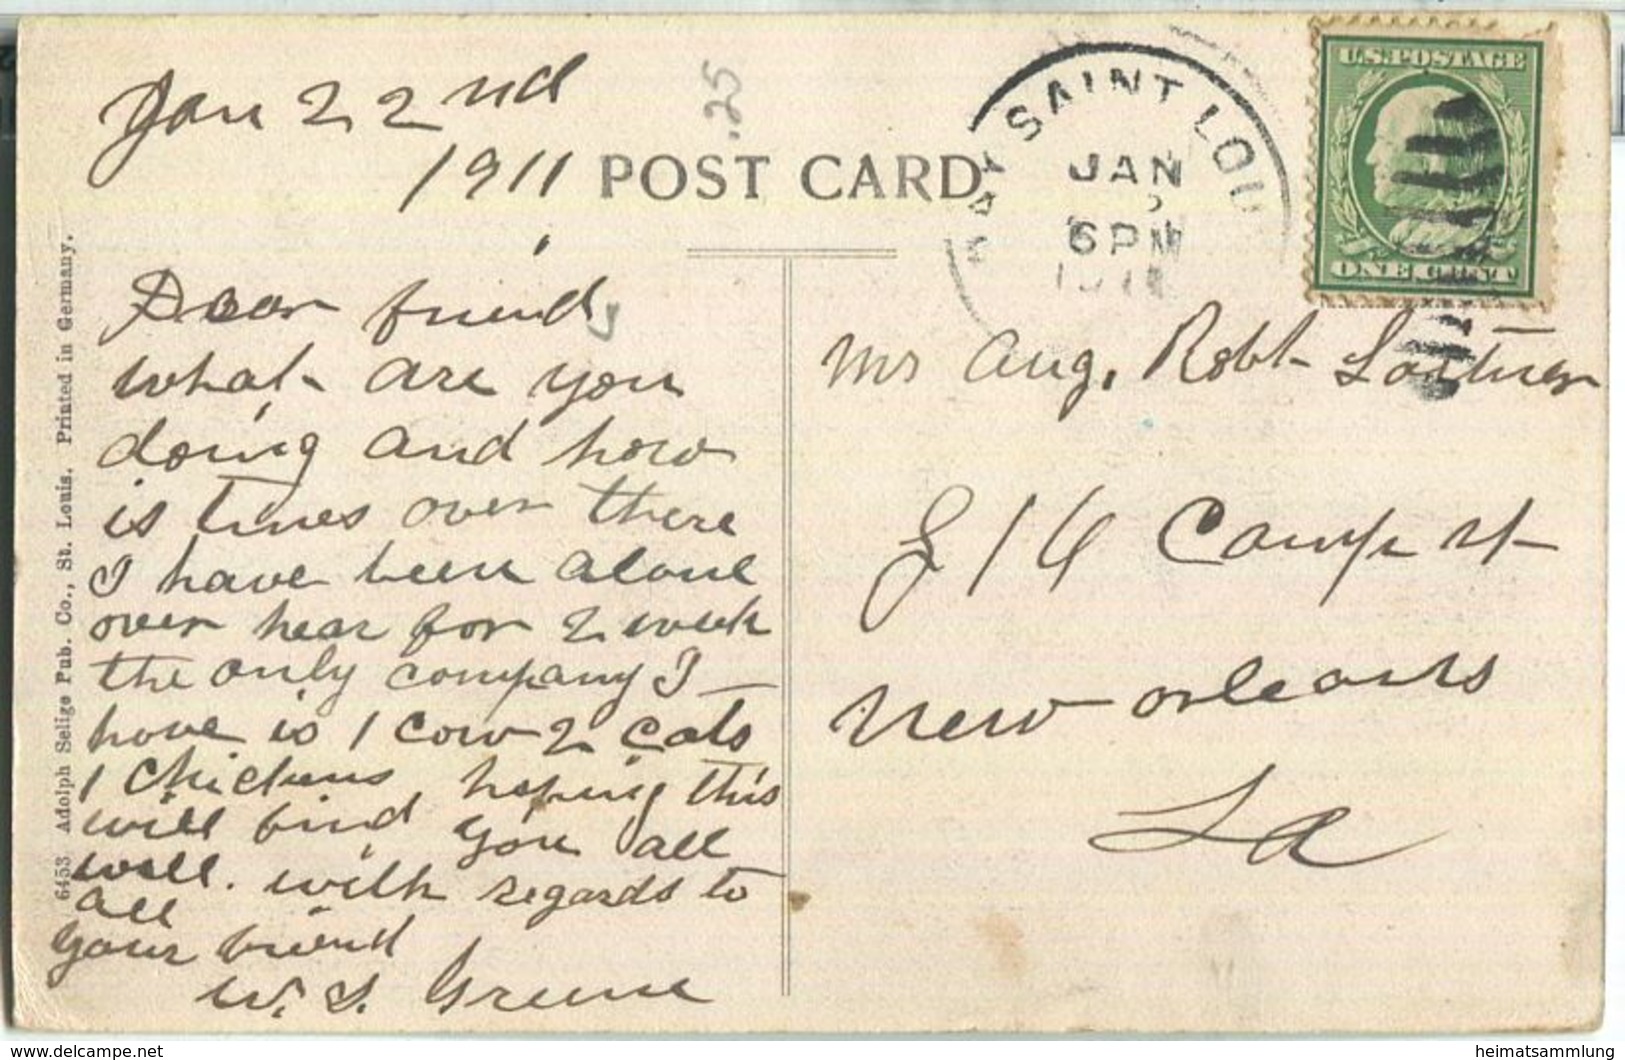 Jan 22nd
1911
.25
POST CARD
BAY SAINT LOUI
JAN
6 PM
1911
U.S. POSTAGE
ONE CENT
Dear friend,
what are you
doing and how
is times over there
I have been alone
over hear for 2 week
the only company I
have is 1 cow 2 cats
1 chickens, hoping this
will find you all
well. with regards to
all
your friend
W. S. Greene
Mr Aug. Robt
816 Camp st
New Orleans
La
6453 Adolph Selige Pub. Co., St. Louis. Printed in Germany.
delcampe.net
heimatsammlung